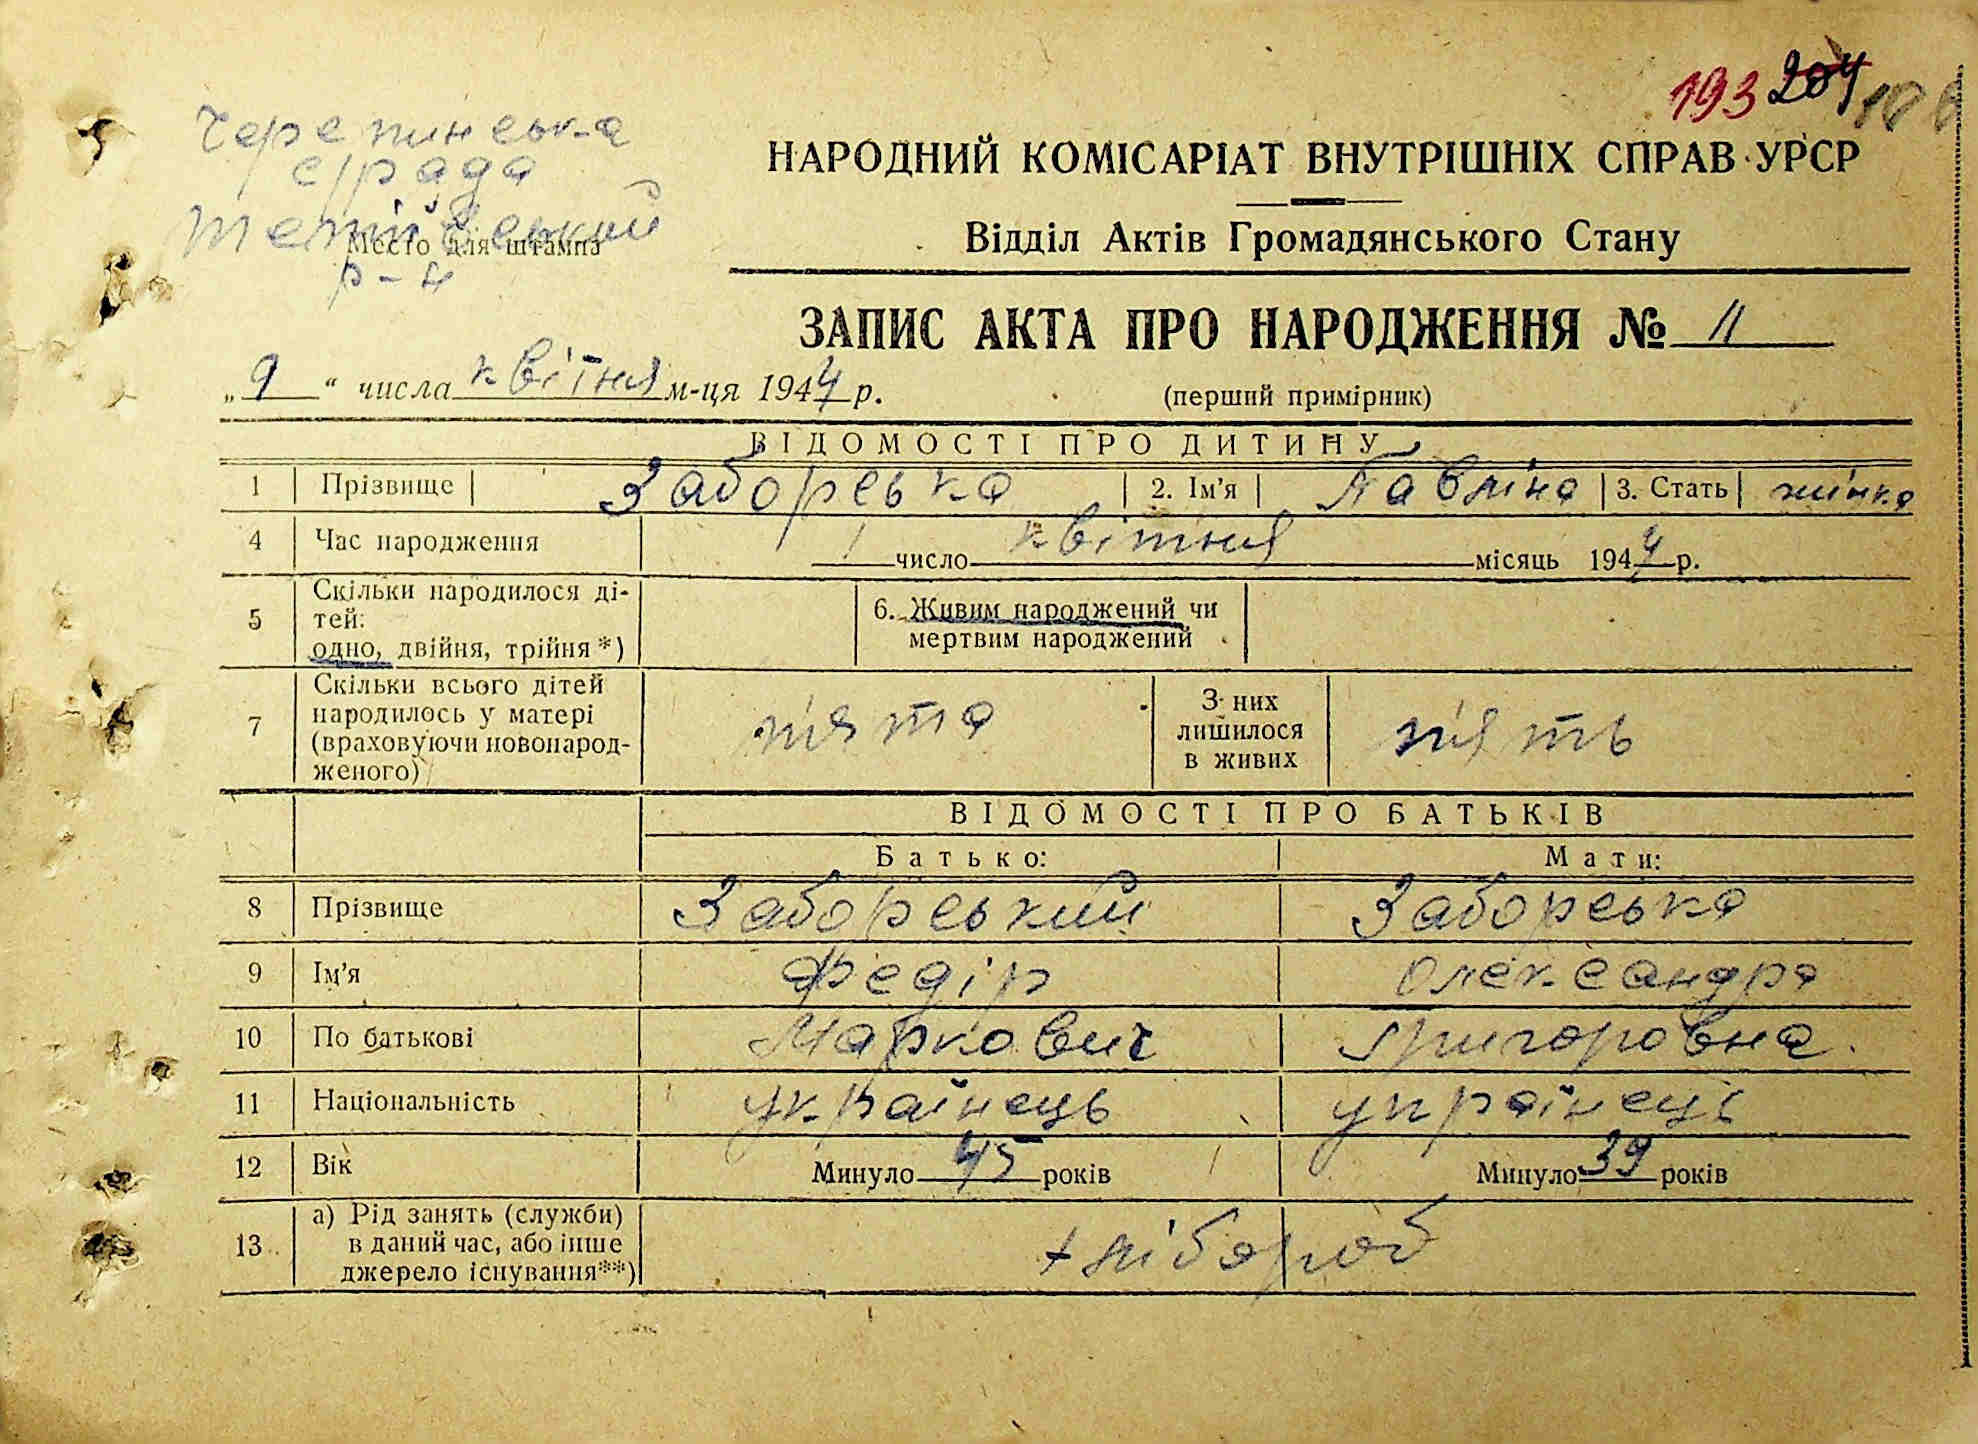 193 204
Черепинська
с/рада
Тетіївський
Место для штампа
р-н
НАРОДНИЙ КОМІСАРІАТ ВНУТРІШНІХ СПРАВ УРСР
Відділ Актів Громадянського Стану
ЗАПИС АКТА ПРО НАРОДЖЕННЯ № 11
„9“ числа квітня м-ця 1944 р.
(перший примірник)
ВІДОМОСТІ ПРО ДИТИНУ
1 Прізвище Заборська 2. Ім'я Павліна 3. Стать жінка
4 Час народження 1 число квітня місяць 1944 р.
5 Скільки народилося ді-
тей:
одно, двійня, трійня *)
6. Живим народжений чи
мертвим народжений
7 Скільки всього дітей
народилось у матері
(враховуючи новонарод-
женого)
п'ята
З них
лишилося
в живих
п'ять
ВІДОМОСТІ ПРО БАТЬКІВ
Батько: Мати:
8 Прізвище Заборський Заборська
9 Ім'я Федір Олександра
10 По батькові Маркович Григоровна
11 Національність українець українець
12 Вік Минуло 45 років Минуло 39 років
13 а) Рід занять (служби)
в даний час, або інше
джерело існування**)
хлібороб